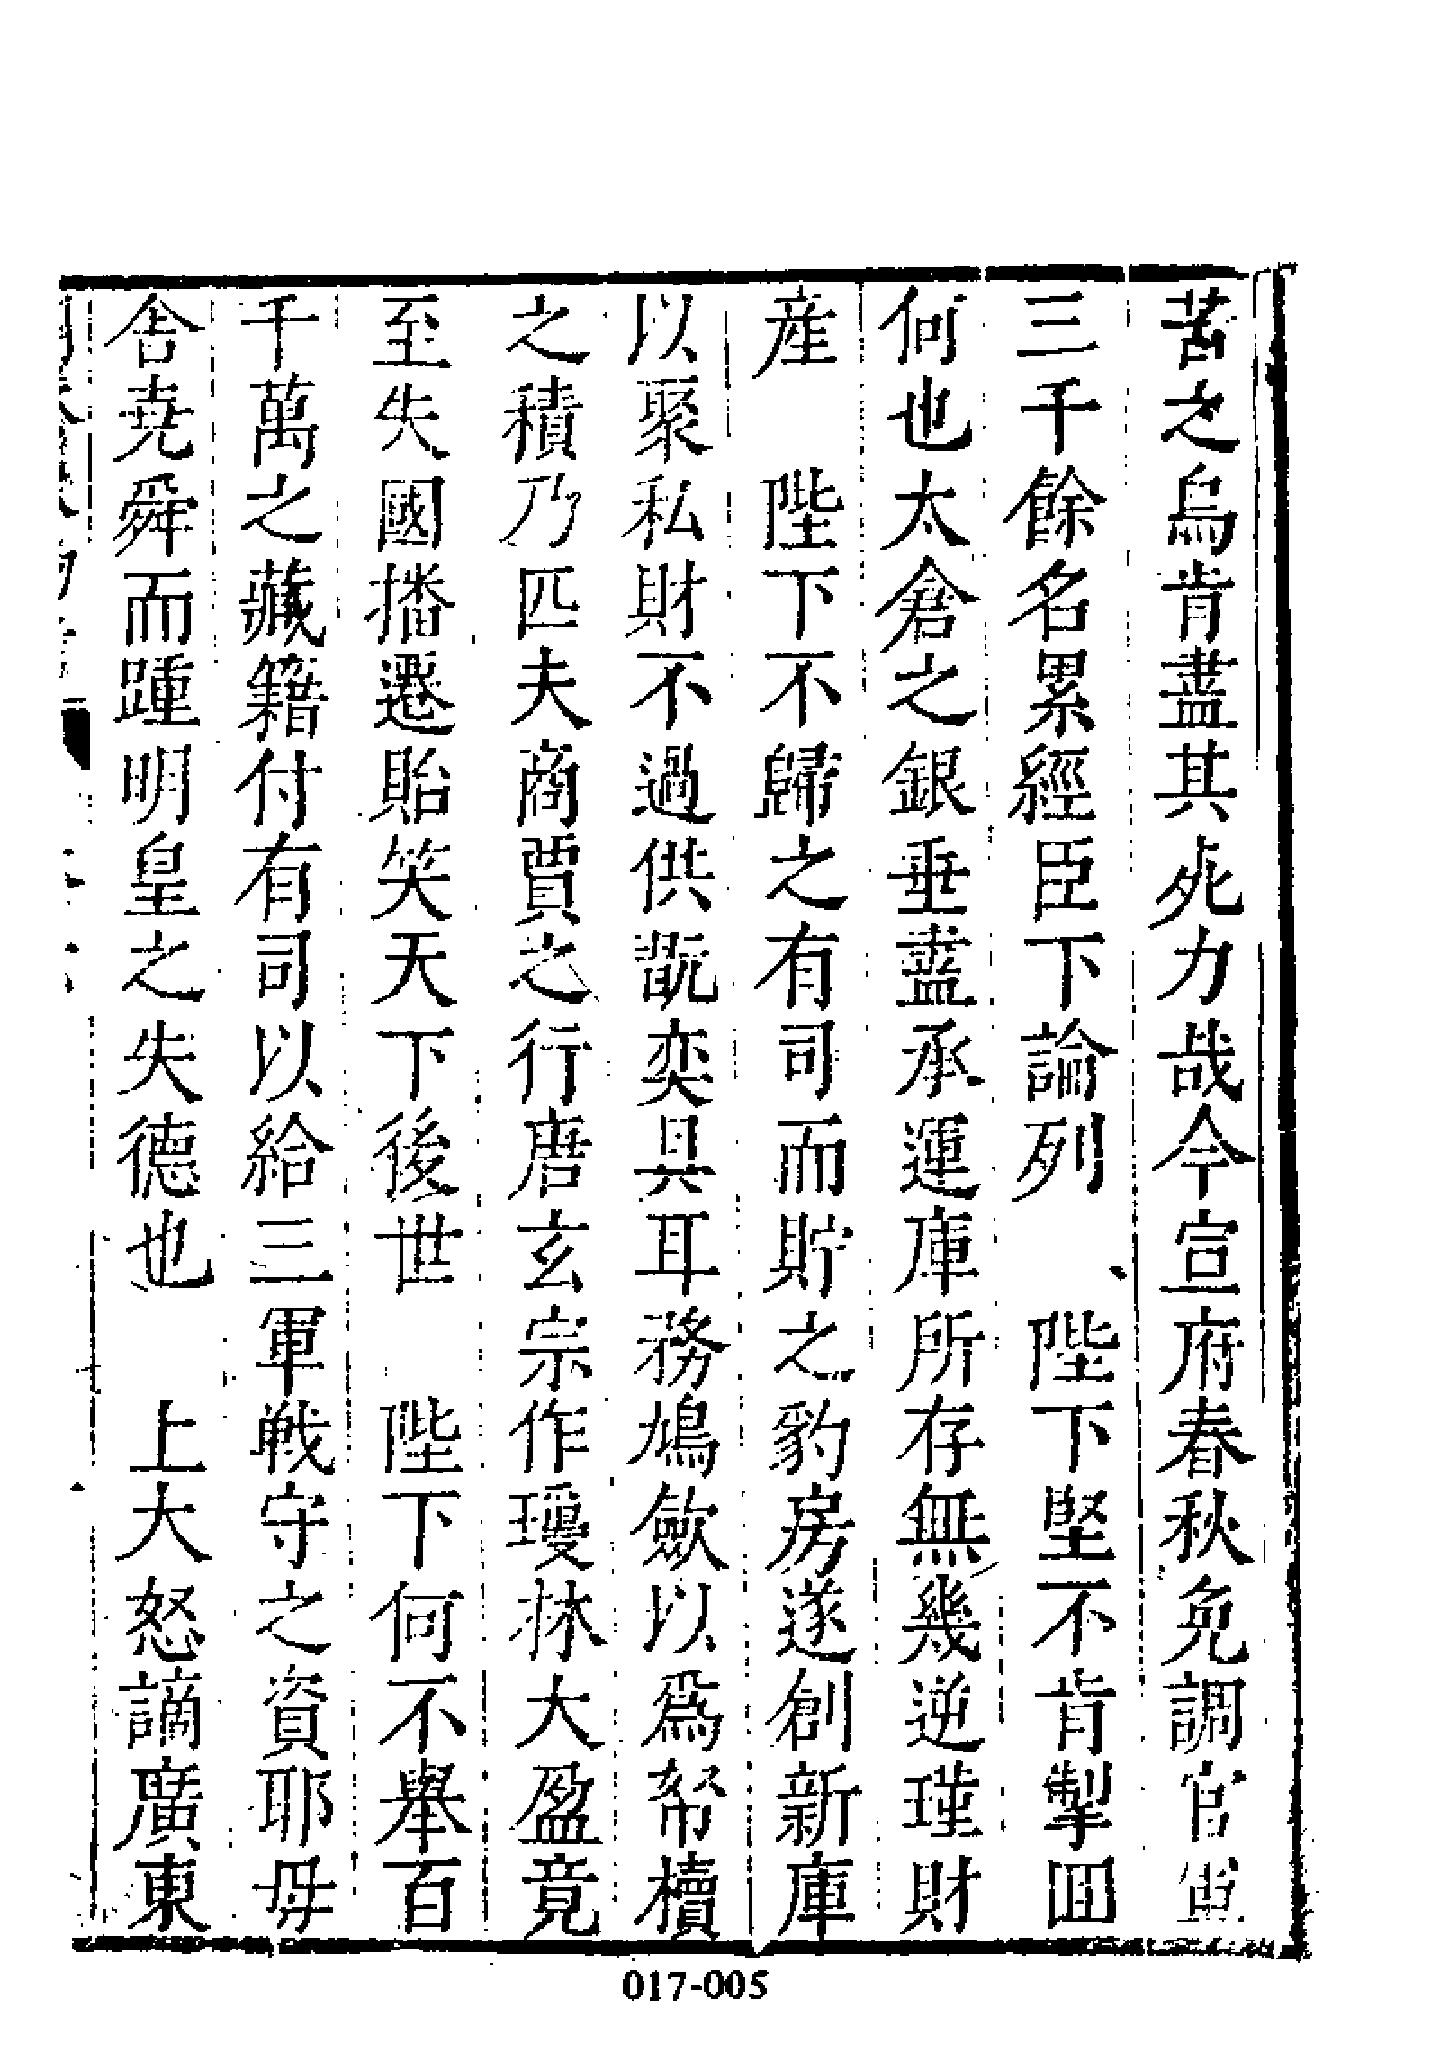 苦之烏肯盡其死力哉今宣府春秋免調官軍
三千餘名累經臣下論列　陛下堅不肯掣回
何也太倉之銀垂盡承運庫所存無幾逆瑾財
産　陛下不歸之有司而貯之豹房遂創新庫
以聚私財不過供翫奕具耳務鳩歛以爲帑櫝
之積乃匹夫商賈之行唐玄宗作瓊林大盈竟
至失國播遷貽笑天下後世　陛下何不舉百
千萬之藏籍付有司以給三軍戦守之資耶毋
舍尭舜而踵明皇之失德也　上大怒謫廣東
017-005